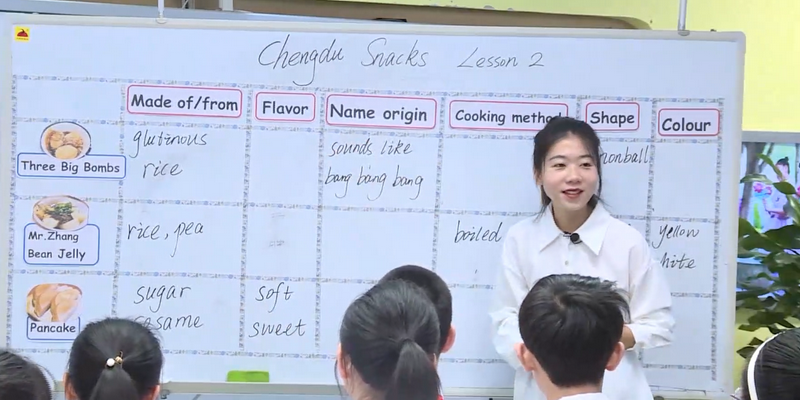 Chengdu Snacks Lesson 2
Made of/from Flavor Name origin Cooking method Shape Colour
Three Big Bombs
glutinous
rice
sounds like
bang bang bang
Mr.Zhang
Bean Jelly
rice, pea
boiled
yellow
Pancake
sugar
soft
sweet